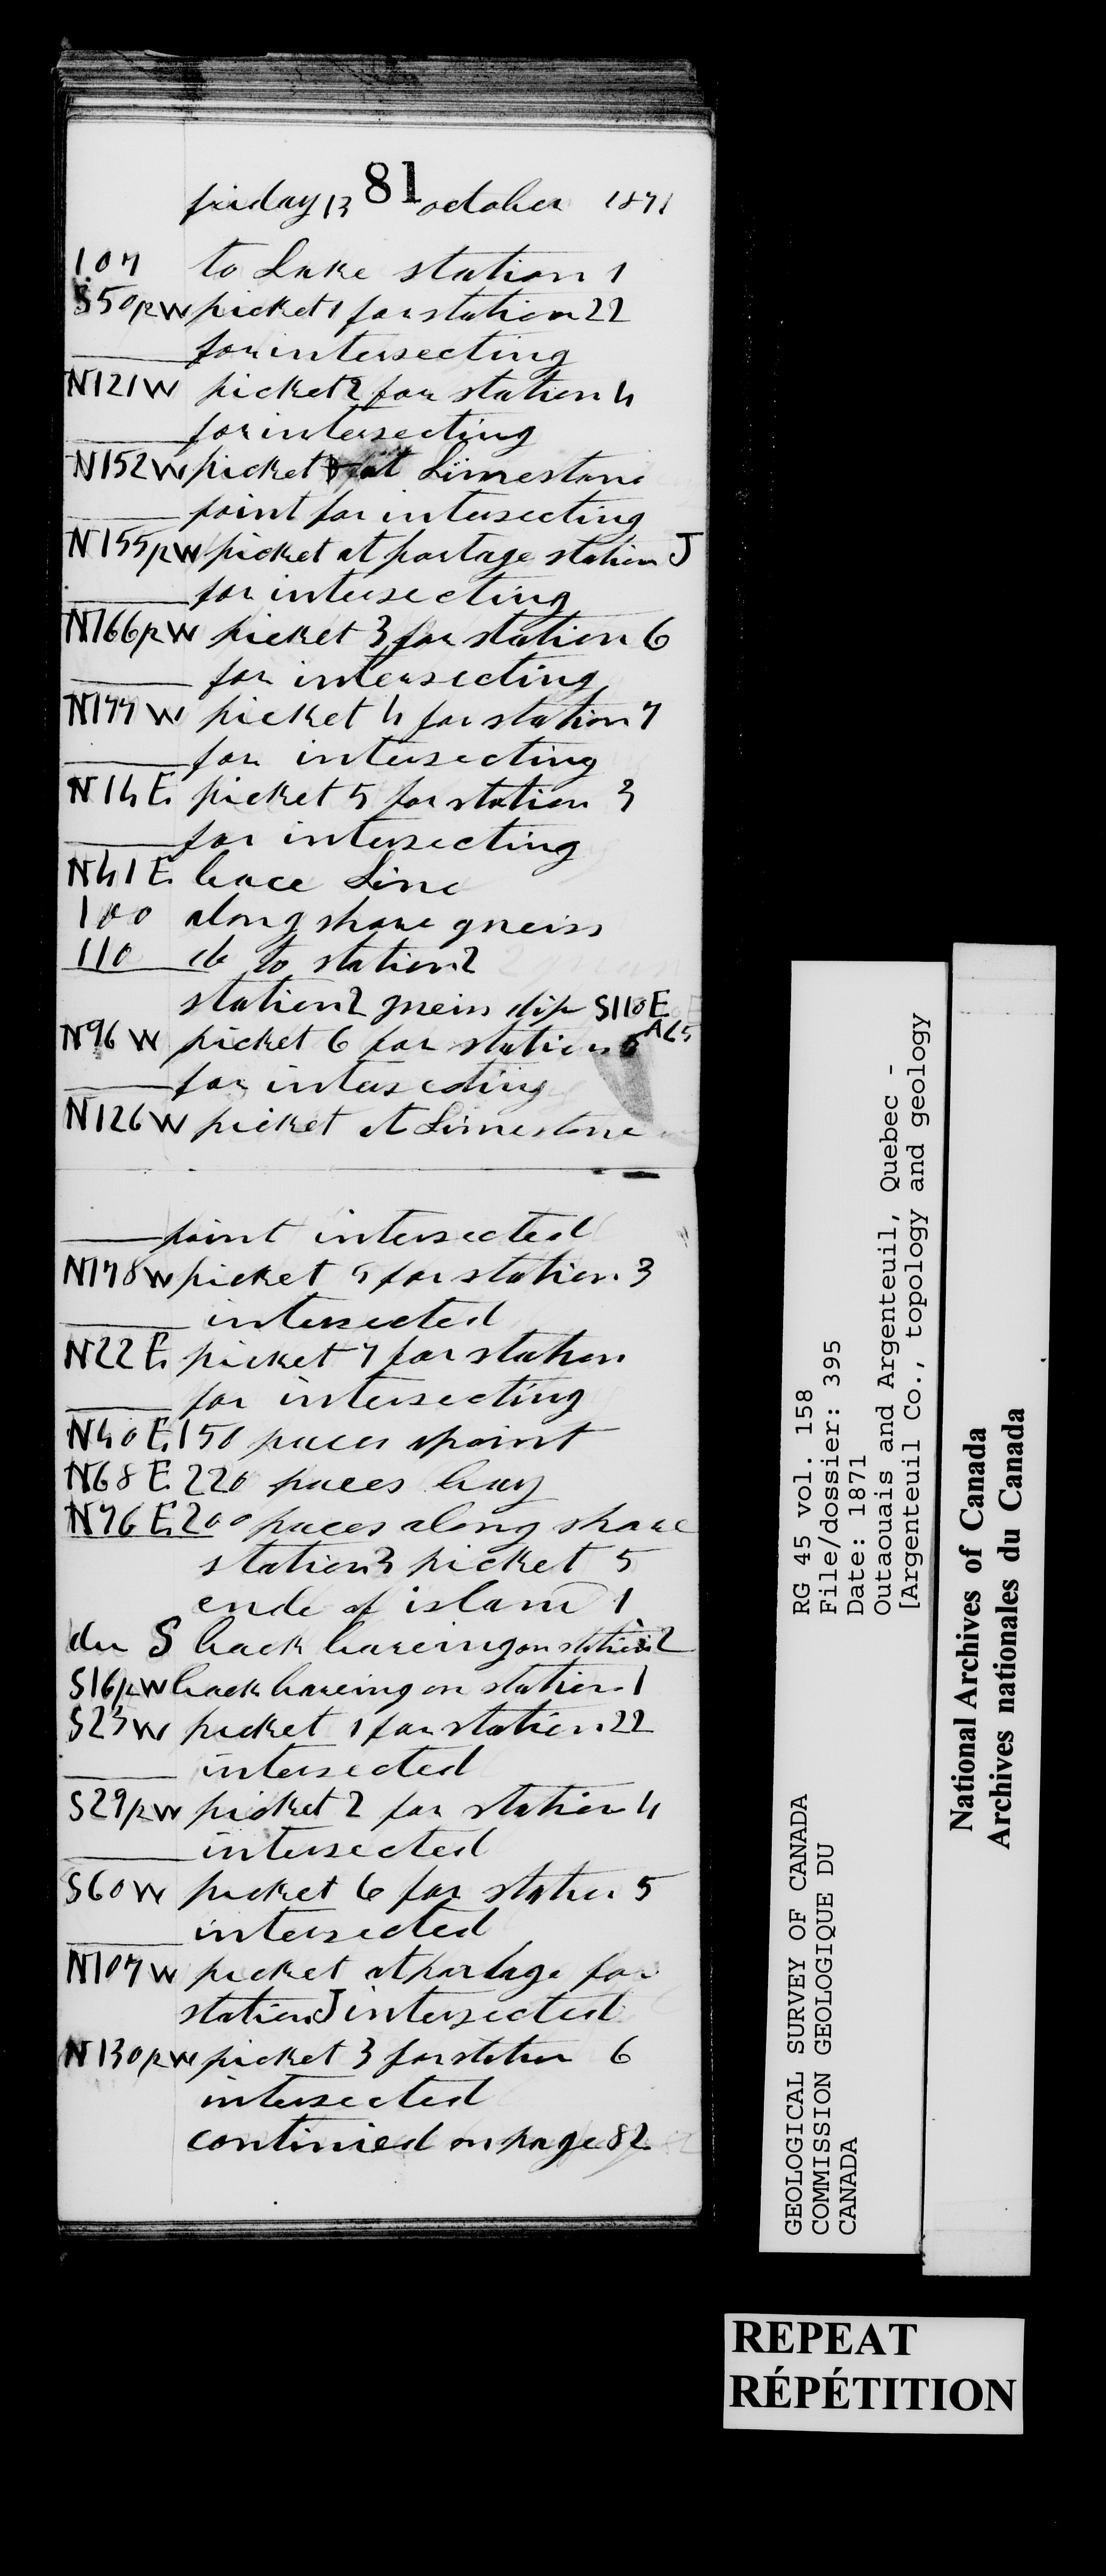 81
friday 13 october 1871
107 to Lake station 1
S50½W picket 1 for station 22
for intersecting
N121W picket 2 for station 4
for intersecting
N152W picket at Limestone
point for intersecting
N155½W picket at portage station J
for intersecting
N166½W picket 3 for station 6
for intersecting
N177W picket 4 for station 7
for intersecting
N14E picket 5 for station 3
for intersecting
N41E bace Line
100 along shore gneiss
110 do to station 2
station 2 gneiss dip S110E
N96W picket 6 for station 5
for intersecting
N126W picket at Limestone
point intersected
N178W picket 5 for station 3
intersected
N22E picket 7 for station
for intersecting
N40E 150 paces apoint
N68E 220 paces bay
N76E 200 paces along shore
station 3 picket 5
ende of island 1
du S back bareing on station 2
S16½W back bareing on station 1
S23W picket 1 for station 22
intersected
S29½W picket 2 for station 4
intersected
S60W picket 6 for station 5
intersected
N107W picket at portage for
station J intersected
N130½W picket 3 for station 6
intersected
continied on page 82
GEOLOGICAL SURVEY OF CANADA
COMMISSION GEOLOGIQUE DU
CANADA
RG 45 vol. 158
File/dossier: 395
Date: 1871
Outaouais and Argenteuil, Quebec -
[Argenteuil Co., topology and geology
National Archives of Canada
Archives nationales du Canada
REPEAT
RÉPÉTITION